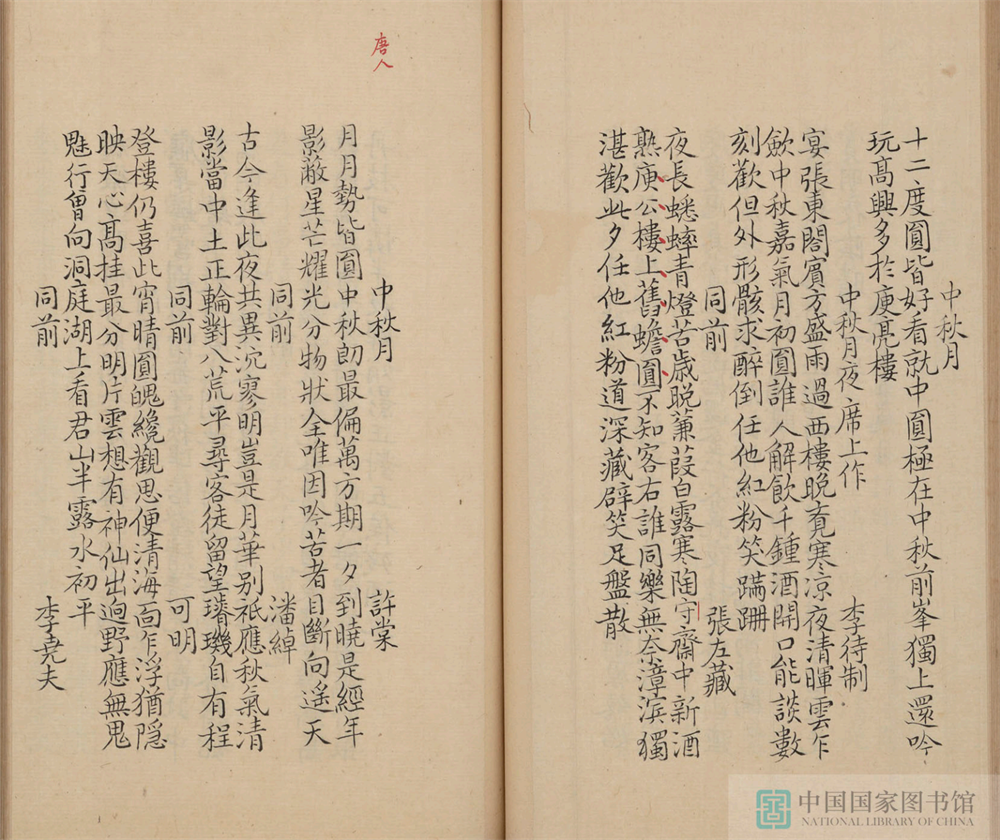 中秋月
十二度圓皆好看就中圓極在中秋前峯獨上還吟
玩高興多於庾亮樓
中秋月夜席上作 李待制
宴張東閤賓方盛雨過西樓晚竟寒凉夜清暉雲乍
歛中秋嘉氣月初圓誰人解飲千鍾酒開口能談數
刻歡但外形骸求醉倒任他紅粉笑蹣跚
同前 張左藏
夜長蟋蟀青燈苦歲晩蒹葭白露寒陶守齋中新酒
熟庾公樓上舊蟾圓不知客右誰同樂無奈漳濱獨
湛歡此夕任他紅粉道深藏辟笑足盤散
唐人
中秋月 許棠
月月勢皆圓中秋朗最偏萬方期一夕到曉是經年
影蔽星芒耀光分物狀全唯因吟苦者目斷向遥天
同前 潘緯
古今逢此夜共異沉寥明豈是月華别祇應秋氣清
影當中土正輪對八荒平尋客徒留望璿璣自有程
同前 可明
登樓仍喜此宵晴圓魄纔觀思便清海靣乍浮猶隱
映天心高挂最分明片雲想有神仙出逈野應無鬼
魅行曾向洞庭湖上看君山半露水初平
同前 李堯夫
中国国家图书馆
NATIONAL LIBRARY OF CHINA